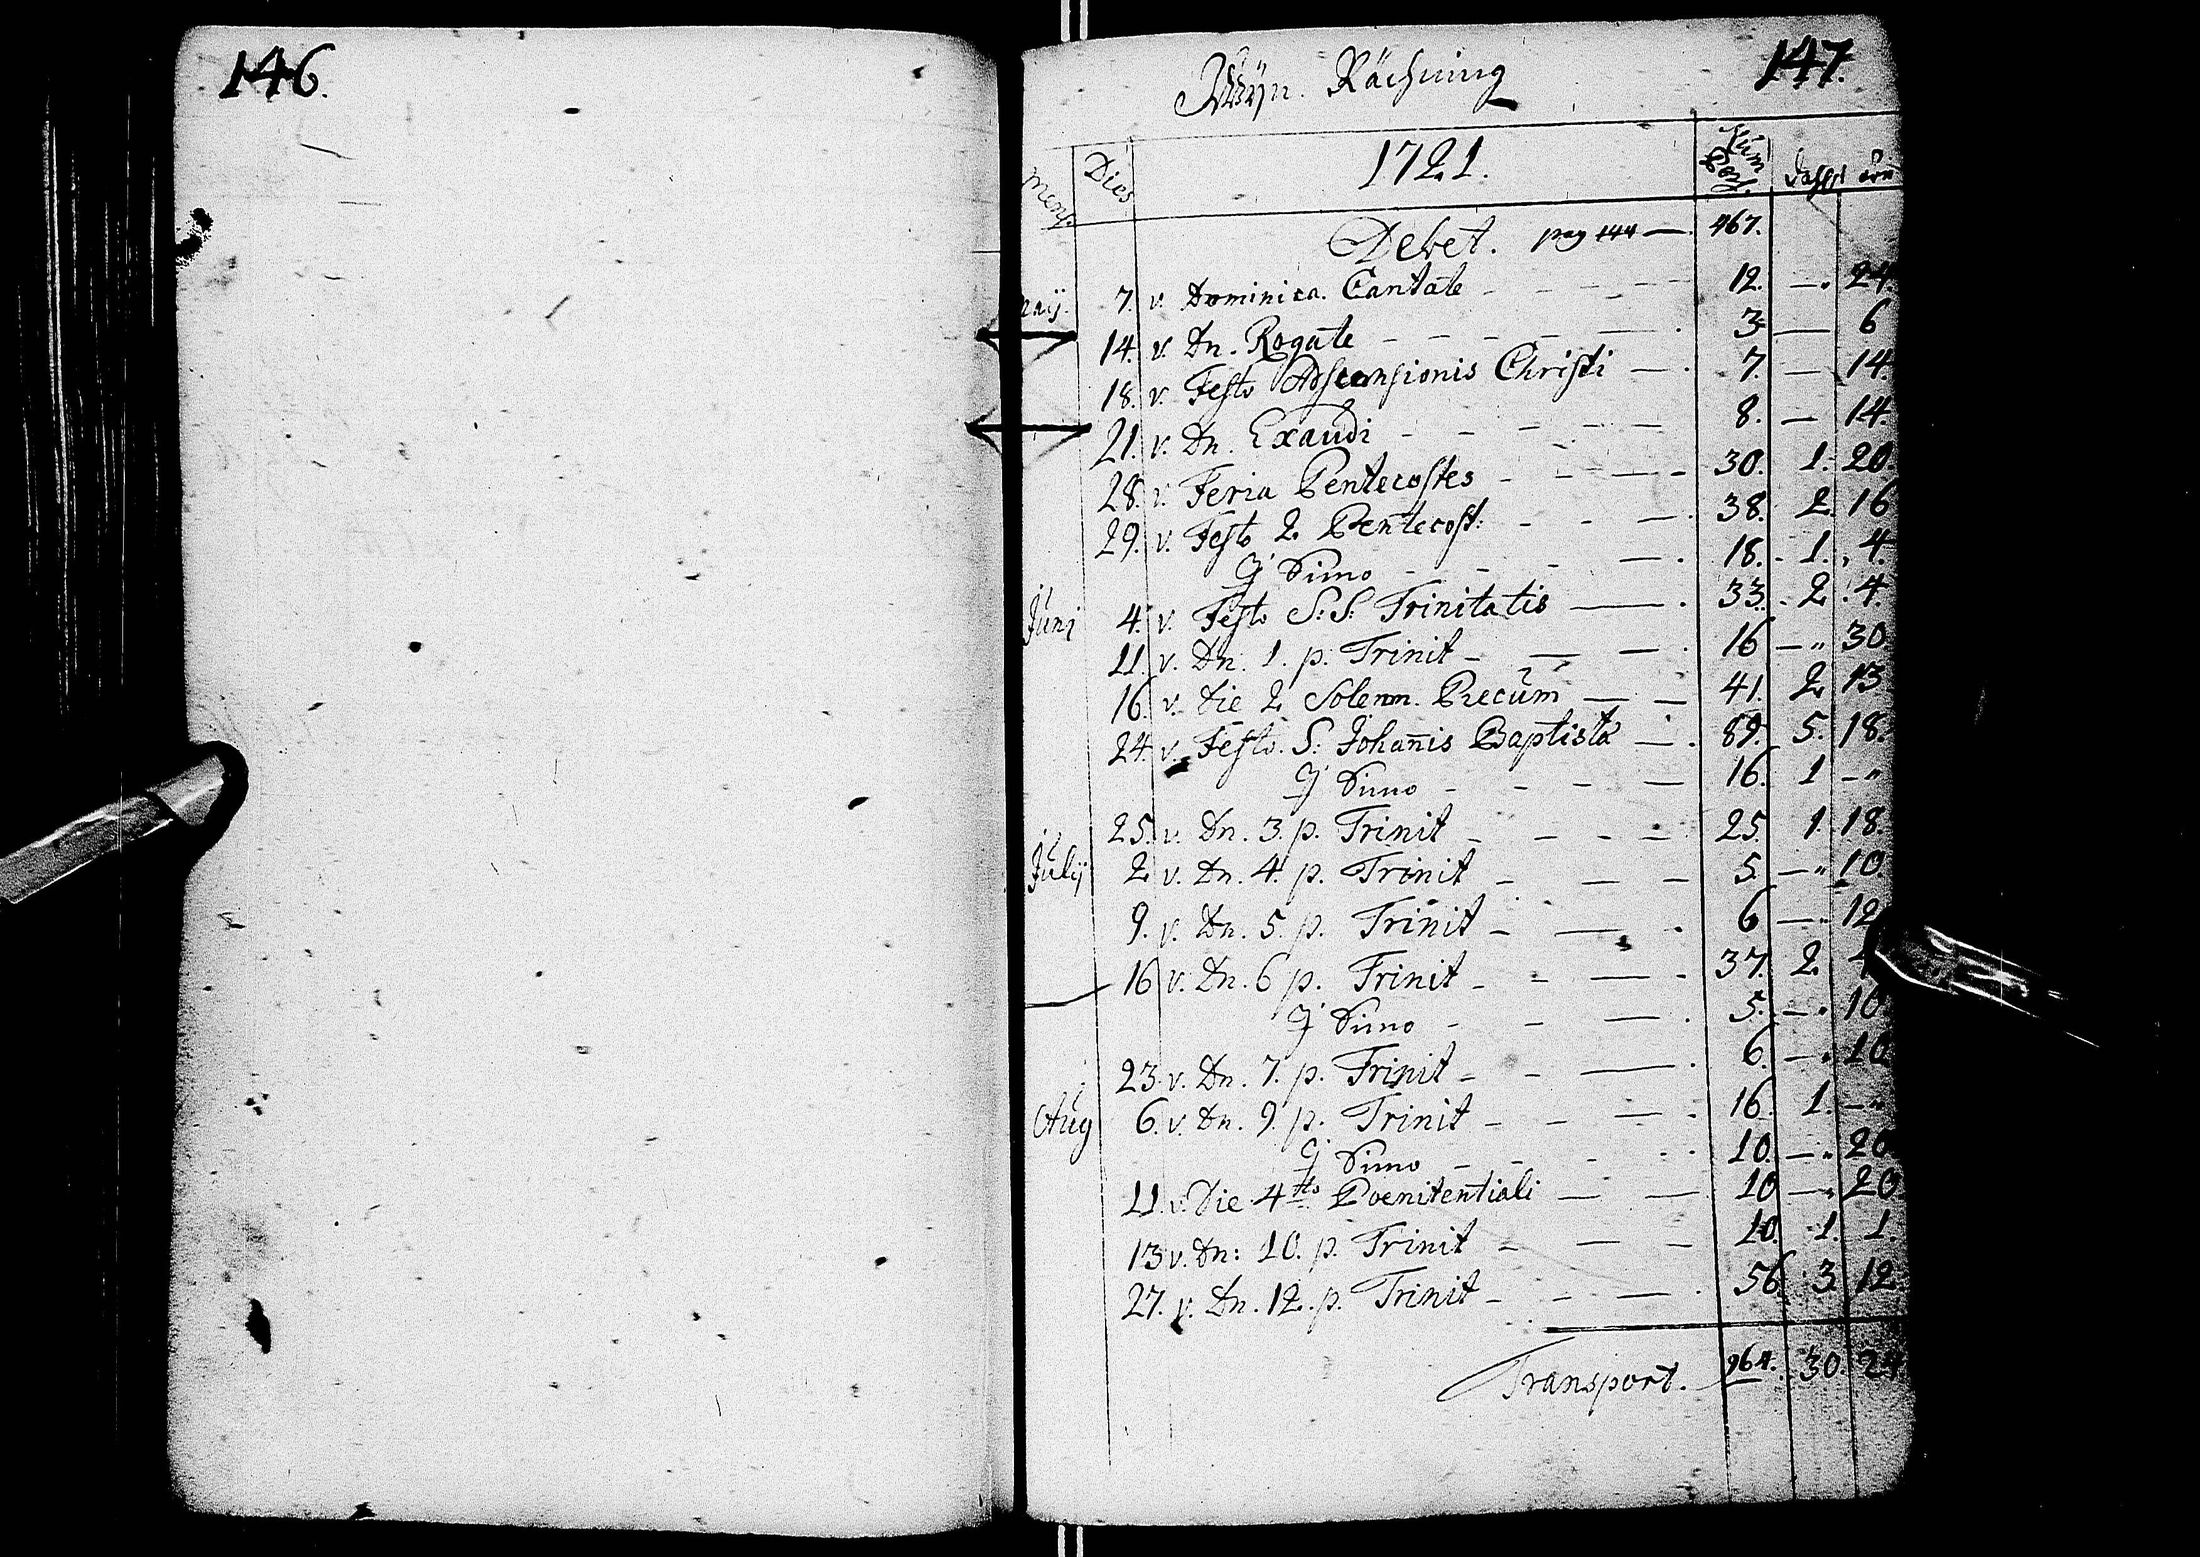 146.
147.
Wijn. Rächning
Mens. Dies 1721. Num Pers. dahlr öre
Debet. pag 144 — 467.
Maij. 7. v. Dominica. Cantate - - - - - 12. —. 24.
14. v. Dn. Rogate - - - - — . 3. — 6
18. v. Festo Adscensionis Christi — . 7. — 14.
21. v. Dn. Exaudi - - - - - 8. — 14.
28. v. Feria Pentecostes - - - - 30. 1. 20.
29. v. Festo 2. Pentecost: - - — . 38. 2. 16
Dimo - - - — . 18. 1. 4.
Juni 4. v. Festo S:S: Trinitatis — . 33. 2. 4.
11. v. Dn. 1. p. Trinit - — — . 16 — " 30
16. v. Die 2 Solenn. Precum — — 41. 2. 13
24. v. Festo. S: Johanis Baptistæ — . 89. 5. 18.
Dimo - - - — 16. 1 — "
25. v. Dn. 3. p. Trinit - - - - 25. 1. 18.
Julij 2. v. Dn. 4. p. Trinit - — — 5. — " 10.
9. v. Dn. 5. p. Trinit - — . 6 — . 12
16 v. Dn. 6 p. Trinit - - — . 37. 2.
Dimo - - — . 5. — . 10
23. v. Dn. 7. p. Trinit - - — . 6. — . 10
Aug 6. v. Dn. 9. p. Trinit - - — . 16. 1. — "
Dimo - - - - . 10. — " 20
11. v. Die 4to Poenitentiali — — 10 — " 20
13 v. Dn: 10. p. Trinit - — - 10. 1. 1.
27. v. Dn. 12. p. Trinit - - — . 56. 3. 12.
Transport. 964. 30. 24